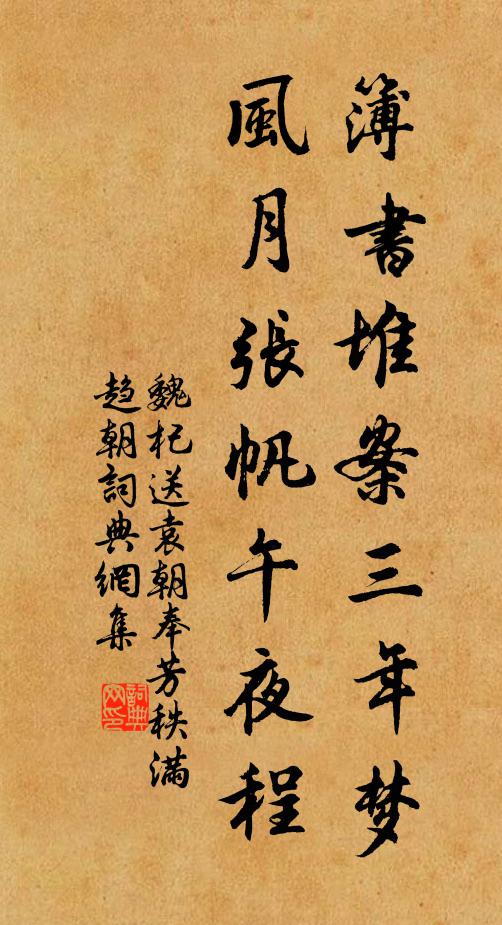 簿書堆案三年梦
風月張帆午夜程
魏杞送袁朝奉芳秩滿
趋朝詞典網集
詞典网印